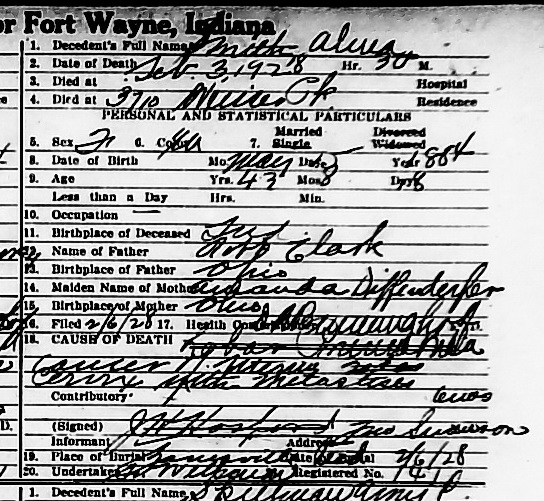 or Fort Wayne, Indiana
1. Decedent's Full Name Smith Alma
2. Date of Death Feb. 3, 1928 Hr. 30 M.
3. Died at Hospital
4. Died at 3710 Pk Residence
PERSONAL AND STATISTICAL PARTICULARS
Married Divorced
5. Sex F 6. Color 7. Single Widowed
8. Date of Birth Mo. May Date 5 Year 1884
9. Age Yrs. 43 Mos. 8 Days
Less than a Day Hrs. Min.
10. Occupation —
11. Birthplace of Deceased Ind.
12. Name of Father Robt Clark
13. Birthplace of Father Ohio
14. Maiden Name of Mother Amanda Diffenderfer
15. Birthplace of Mother Ohio
16. Filed 2/6/28 17. Health
18. CAUSE OF DEATH Lobar Pneumonia
Cancer Uterus
Cervix with metastases
Contributory
(Signed)
Informant Address Geo Swanson
19. Place of Burial Date of Burial 2/6/28
20. Undertaker Registered No.
1. Decedent's Full Name